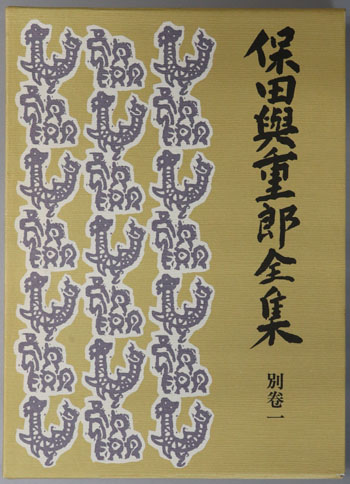 保田與重郎全集
別卷一